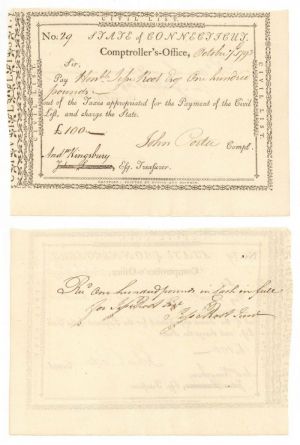 CIVIL LIST.
No. 29 STATE of CONNECTICUT.
Comptroller's-Office, October 7th 1793
Sir,
Pay Honble Jesse Root Esq One hundred
pounds
out of the Taxes appropriated for the Payment of the Civil
List, and charge the State.
£100
John Porter Compt.
Andw Kingsbury
Esq. Treasurer.
CIVIL LIST
CIVIL LIST
Recd One hundred pounds in Cash in full
for Jesse Root Esqr